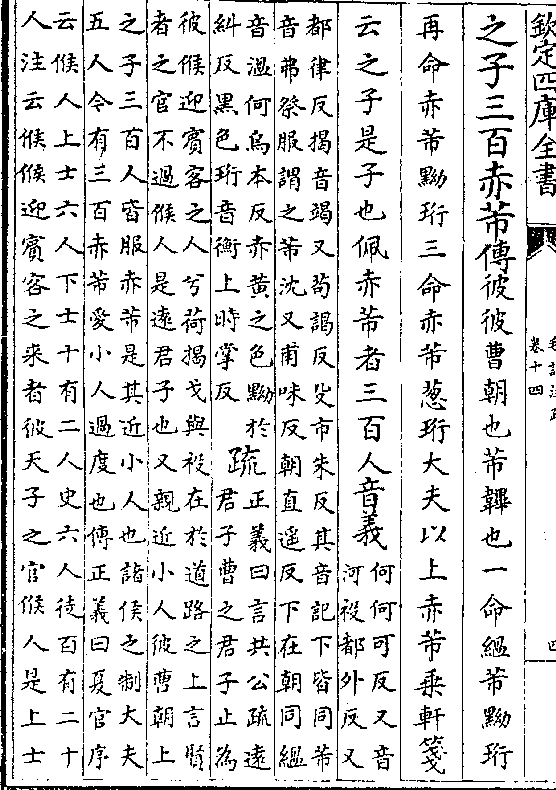 欽定四庫全書
毛詩注疏
卷十四
四
之子三百赤芾傳彼彼曹朝也芾韠也一命緼芾黝珩
再命赤芾黝珩三命赤芾葱珩大夫以上赤芾乗軒箋
云之子是子也佩赤芾者三百人音義
何何可反又音
河祋都外反又
都律反揭音竭又茍謁反殳市朱反其音記下皆同芾
音弗祭服謂之芾沈又甫味反朝直遥反下在朝同緼
音温何烏本反赤黄之色黝於
糾反黒色珩音衡上時掌反
疏
正義曰言共公疏逺
君子曹之君子止為
彼候迎賓客之人兮荷揭戈與祋在於道路之上言賢
者之官不過候人是逺君子也又親近小人彼曹朝上
之子三百人皆服赤芾是其近小人也諸侯之制大夫
五人今有三百赤芾愛小人過度也傳正義曰夏官序
云候人上士六人下士十有二人史六人徒百有二十
人注云候候迎賓客之来者彼天子之官候人是上士